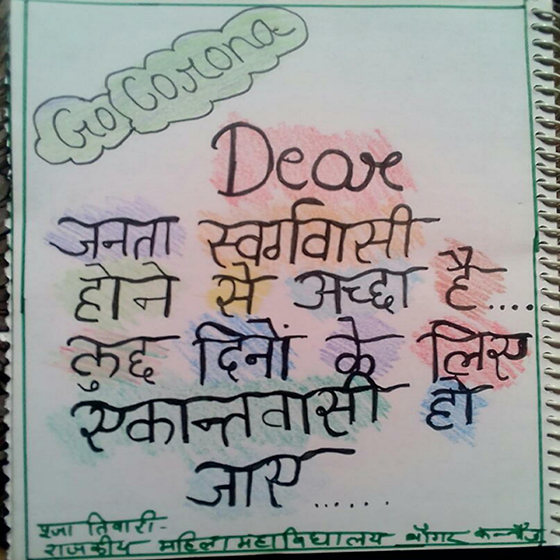 Go Corona
Dear
जनता स्वर्गवासी
होने से अच्छा है....
कुछ दिनों के लिए
एकान्तवासी हो
जाए......
पूजा तिवारी-
राजकीय महिला महाविद्यालय बाँगर कन्नौज